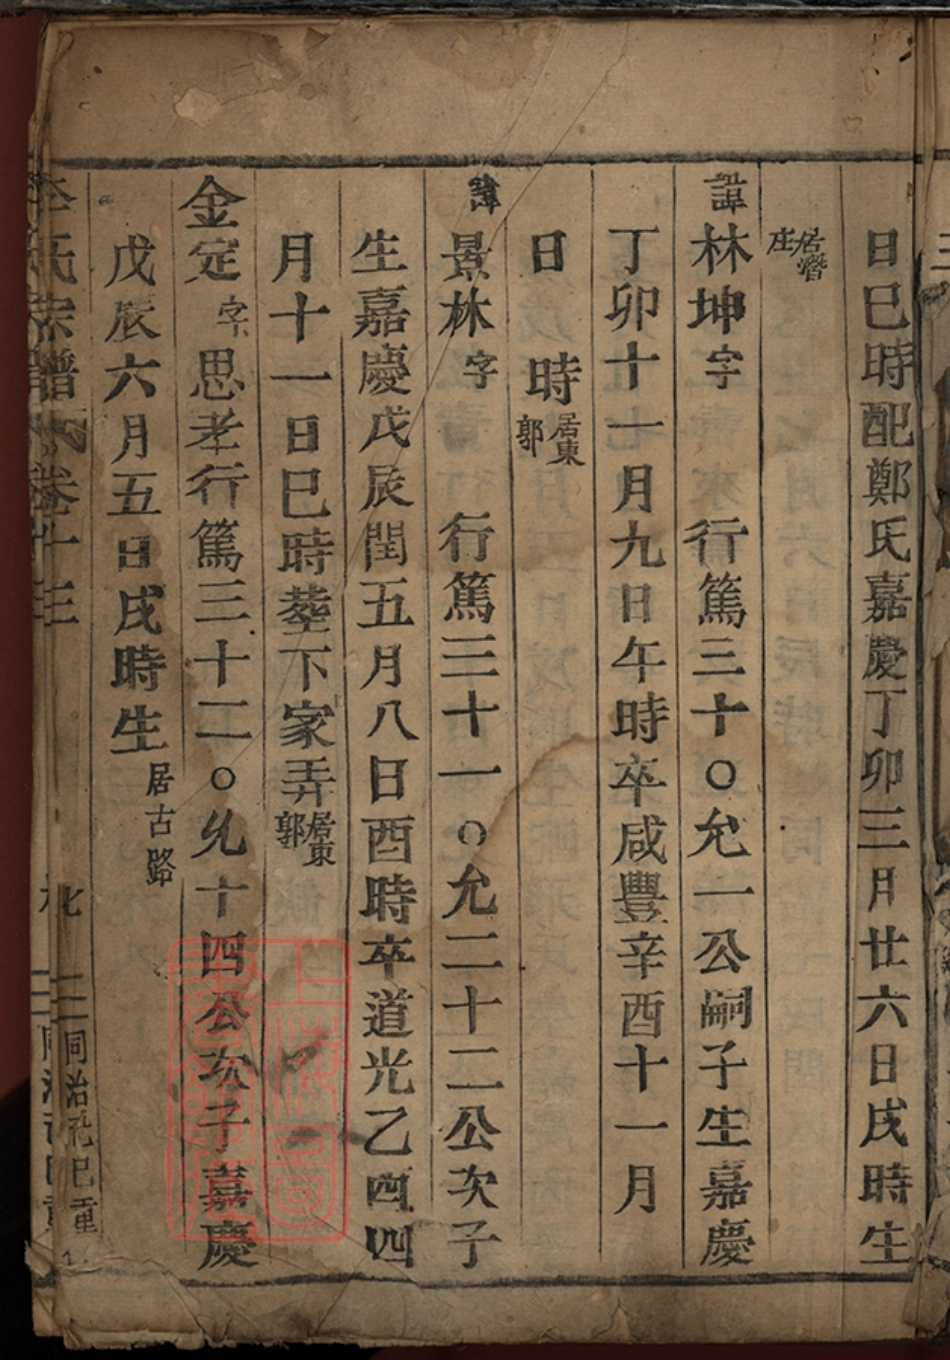 日巳時配鄭氏嘉慶丁卯三月廿六日戌時生
居潛
庄
諱林坤字 行篤三十○允一公嗣子生嘉慶
丁卯十一月九日午時卒咸豐辛酉十一月
日 時居東
郭
諱景林字 行篤三十一○允二十二公次子
生嘉慶戊辰閏五月八日酉時卒道光乙酉四
月十一日巳時塟下家弄居東
郭
金定字思孝行篤三十二○允十四公次子嘉慶
戊辰六月五日戌時生居古路
氏宗譜 卷十三
同治己巳重